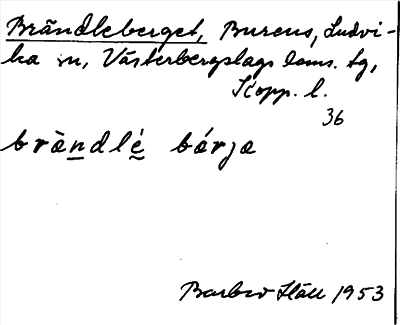 Brändleberget, Burens, Ludvi-
ka sn, Västerbergslags doms. tg,
Kopp. l.
36
bràndlé bárja
Barbro Häll 1953